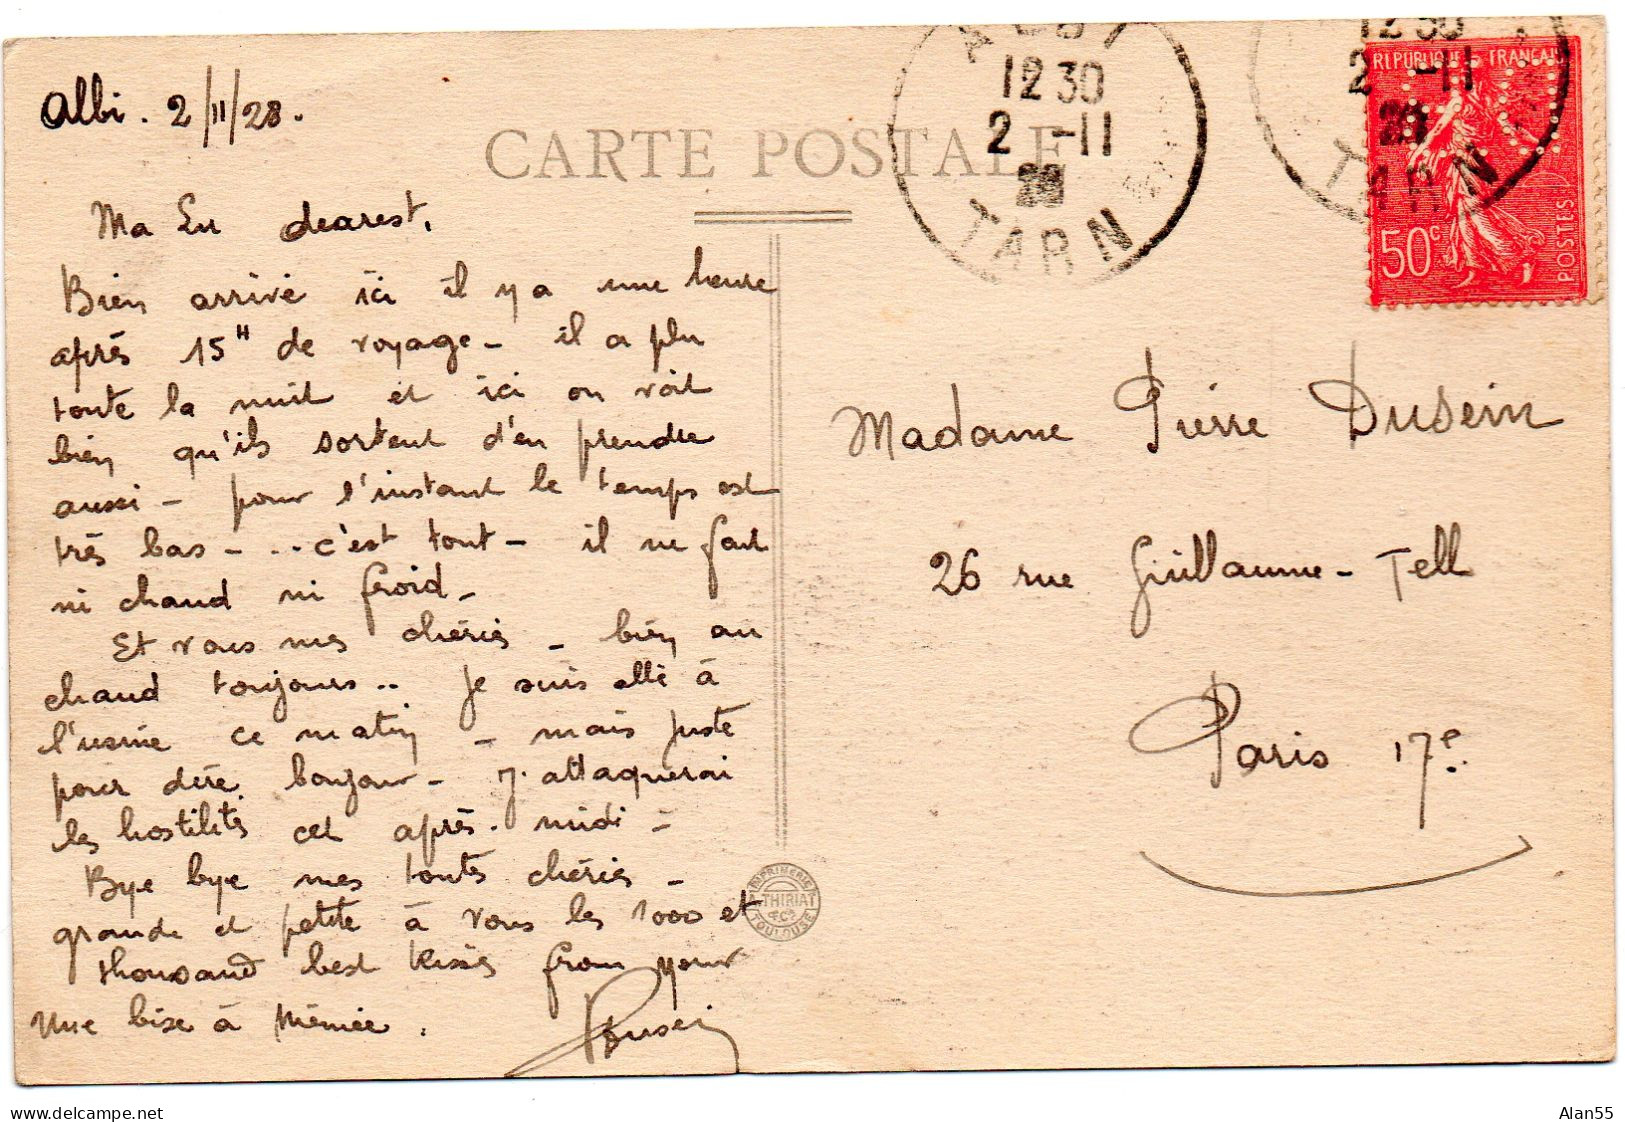 Albi. 2/11/28.
CARTE POSTALE
Ma Lu dearest,
Bien arrivé ici il y a une heure
après 15ᴴ de voyage - il a plu
toute la nuit et ici on voit
bien qu'ils sortent d'en prendre
aussi - pour l'instant le temps est
très bas - .. c'est tout - il ne fait
ni chaud ni froid -
Et vous mes chéries - bien au
chaud toujours.. Je suis allé à
l'usine ce matin - mais juste
pour dire bonjour - J'attaquerai
les hostilités cet après-midi -
Bye bye mes toutes chéries -
grande et petite à vous les 1000 et
thousand best kisses from your
Une bise à Mémée.
12 30
2 -11
28
TARN
12 30
2 -11
28
TARN
REPUBLIQUE FRANÇAISE
50c
POSTES
Madame Pierre Dusein
26 rue Guillaume-Tell
Paris 17e.
IMPRIMERIE
THIRIAT
& Cie
TOULOUSE
delcampe.net
Alan55